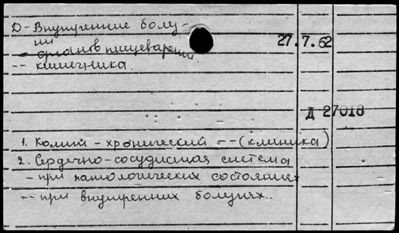 D- Внутренние болу-
ни
- органов пищеварения
-- кишечника
27.7.62
Д 27018
1. Колит - хронический -- (клиника)
2. Сердечно-сосудистая система
- при патологических состояниях
-- при внутренних болунях..